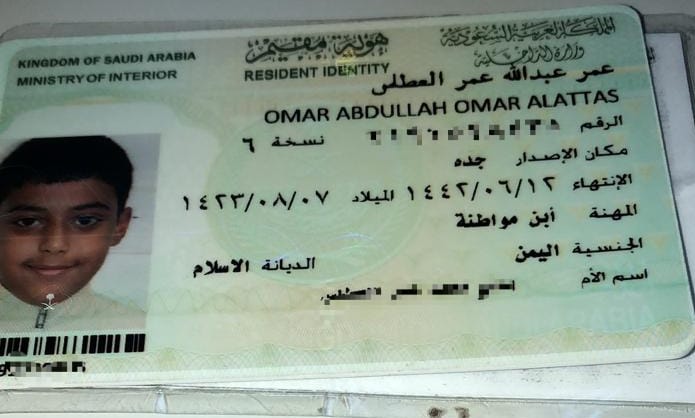 المملكة العربية السعودية
وزارة الداخلية
هوية مقيم
KINGDOM OF SAUDI ARABIA
MINISTRY OF INTERIOR
RESIDENT IDENTITY
عمر عبدالله عمر العطاس
OMAR ABDULLAH OMAR ALATTAS
الرقم نسخة ٦
مكان الإصدار جده
الإنتهاء ١٤٤٢/٠٦/١٢ الميلاد ١٤٢٣/٠٨/٠٧
المهنة أبن مواطنة
الجنسية اليمن
الديانة الاسلام
اسم الأم